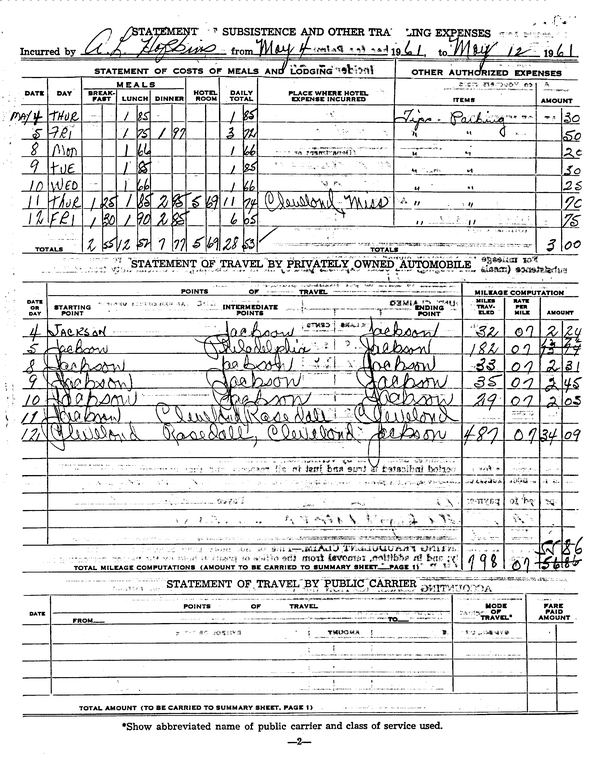 STATEMENT OF SUBSISTENCE AND OTHER TRA LING EXPENSES
Incurred by A.L. Hopkins from May 4 1961 to May 12 1961
STATEMENT OF COSTS OF MEALS AND LODGING OTHER AUTHORIZED EXPENSES
MEALS
DATE DAY BREAK-FAST LUNCH DINNER HOTEL ROOM DAILY TOTAL PLACE WHERE HOTEL EXPENSE INCURRED ITEMS AMOUNT
MAY 4 THUR 1 85 1 85 Tips - Parking 30
5 FRI 1 75 1 97 3 72 " " 50
8 Mon 1 66 1 66 " " 20
9 TUE 1 85 1 85 " " 30
10 WED 1 66 1 66 " " 25
11 THUR 1 25 1 85 2 95 5 69 11 74 Cleveland, Miss " " 70
12 FRI 1 30 1 90 2 85 6 05 " " 75
TOTALS 2 55 12 52 7 77 5 69 28 53 TOTALS 3 00
STATEMENT OF TRAVEL BY PRIVATELY OWNED AUTOMOBILE
POINTS OF TRAVEL MILEAGE COMPUTATION
DATE OR DAY STARTING POINT INTERMEDIATE POINTS ENDING POINT MILES TRAV-ELED RATE PER MILE AMOUNT
4 JACKSON Jackson Jackson 32 07 2 24
5 Jackson Philadelphia Jackson 182 07
8 Jackson Jackson Jackson 33 07 2 31
9 Jackson Jackson Jackson 35 07 2 45
10 Jackson Jackson Jackson 29 07 2 03
11 Jackson Cleveland Rosedale Cleveland
12 Cleveland Rosedale, Cleveland Jackson 487 07 34 09
55 86
TOTAL MILEAGE COMPUTATIONS (AMOUNT TO BE CARRIED TO SUMMARY SHEET. PAGE 1) 798 07
STATEMENT OF TRAVEL BY PUBLIC CARRIER
DATE POINTS OF TRAVEL MODE OF TRAVEL* FARE PAID AMOUNT
FROM TO
TOTAL AMOUNT (TO BE CARRIED TO SUMMARY SHEET. PAGE 1)
*Show abbreviated name of public carrier and class of service used.
—2—